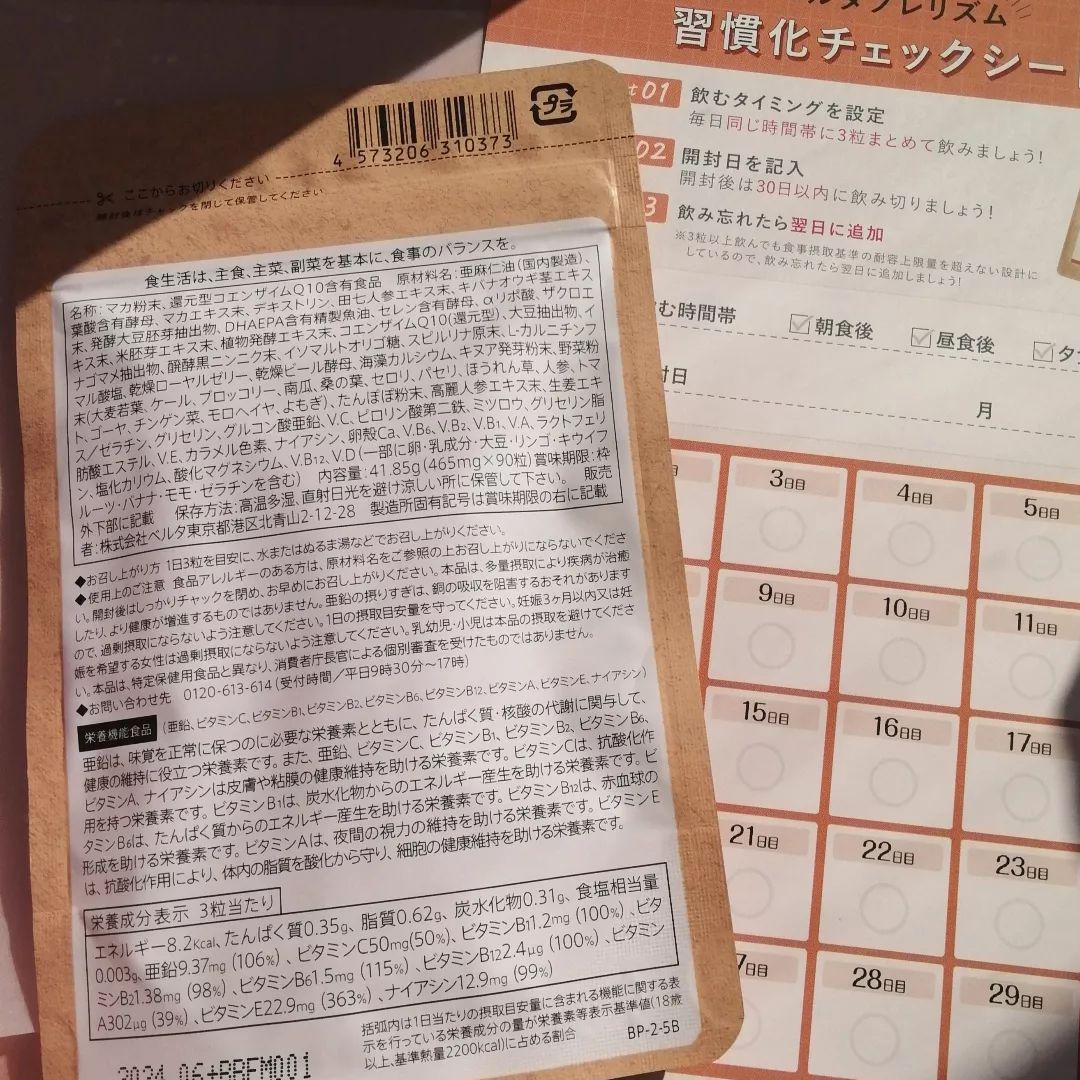 4 573206 310373
プラ
ここからお切りください
開封後はチャックを閉じて保管してください
食生活は、主食、主菜、副菜を基本に、食事のバランスを。
名称:マカ粉末、還元型コエンザイムQ10含有食品 原材料名:亜麻仁油(国内製造)、
葉酸含有酵母、マカエキス末、デキストリン、田七人参エキス末、キバナオウギ茎エキス
末、発酵大豆胚芽抽出物、DHAEPA含有精製魚油、セレン含有酵母、αリポ酸、ザクロエ
キス末、米胚芽エキス末、植物発酵エキス末、コエンザイムQ10(還元型)、大豆抽出物、イ
ナゴマメ抽出物、醗酵黒ニンニク末、イソマルトオリゴ糖、スピルリナ原末、L-カルニチンフ
マル酸塩、乾燥ローヤルゼリー、乾燥ビール酵母、海藻カルシウム、キヌア発芽粉末、野菜粉
末(大麦若葉、ケール、ブロッコリー、南瓜、桑の葉、セロリ、パセリ、ほうれん草、人参、トマ
ト、ゴーヤ、チンゲン菜、モロヘイヤ、よもぎ)、たんぽぽ粉末、高麗人参エキス末、生姜エキ
ス/ゼラチン、グリセリン、グルコン酸亜鉛、V.C、ピロリン酸第二鉄、ミツロウ、グリセリン脂
肪酸エステル、V.E、カラメル色素、ナイアシン、卵殻Ca、V.B6、V.B2、V.B1、V.A、ラクトフェリ
ン、塩化カリウム、酸化マグネシウム、V.B12、V.D(一部に卵・乳成分・大豆・リンゴ・キウイフ
ルーツ・バナナ・モモ・ゼラチンを含む) 内容量:41.85g(465mg×90粒)賞味期限:枠
外下部に記載 保存方法:高温多湿、直射日光を避け涼しい所に保管して下さい。 販売
者:株式会社ベルタ東京都港区北青山2-12-28 製造所固有記号は賞味期限の右に記載
◆お召し上がり方 1日3粒を目安に、水またはぬるま湯などでお召し上がりください。
◆使用上のご注意 食品アレルギーのある方は、原材料名をご参照の上お召し上がりにならないでくださ
い。開封後はしっかりチャックを閉め、お早めにお召し上がりください。本品は、多量摂取により疾病が治癒
したり、より健康が増進するものではありません。亜鉛の摂りすぎは、銅の吸収を阻害するおそれがあります
ので、過剰摂取にならないよう注意してください。1日の摂取目安量を守ってください。妊娠3ヶ月以内又は妊
娠を希望する女性は過剰摂取にならないよう注意してください。乳幼児・小児は本品の摂取を避けてくださ
い。本品は、特定保健用食品と異なり、消費者庁長官による個別審査を受けたものではありません。
◆お問い合わせ先 0120-613-614(受付時間/平日9時30分~17時)
栄養機能食品 (亜鉛、ビタミンC、ビタミンB1、ビタミンB2、ビタミンB6、ビタミンB12、ビタミンA、ビタミンE、ナイアシン)
亜鉛は、味覚を正常に保つのに必要な栄養素とともに、たんぱく質・核酸の代謝に関与して、
健康の維持に役立つ栄養素です。また、亜鉛、ビタミンC、ビタミンB1、ビタミンB2、ビタミンB6、
ビタミンA、ナイアシンは皮膚や粘膜の健康維持を助ける栄養素です。ビタミンCは、抗酸化作
用を持つ栄養素です。ビタミンB1は、炭水化物からのエネルギー産生を助ける栄養素です。ビ
タミンB6は、たんぱく質からのエネルギー産生を助ける栄養素です。ビタミンB12は、赤血球の
形成を助ける栄養素です。ビタミンAは、夜間の視力の維持を助ける栄養素です。ビタミンE
は、抗酸化作用により、体内の脂質を酸化から守り、細胞の健康維持を助ける栄養素です。
栄養成分表示 3粒当たり
エネルギー8.2Kcal、たんぱく質0.35g、脂質0.62g、炭水化物0.31g、食塩相当量
0.003g、亜鉛9.37mg (106%)、ビタミンC50mg(50%)、ビタミンB11.2mg (100%)、ビタ
ミンB21.38mg (98%)、ビタミンB61.5mg (115%)、ビタミンB122.4μg (100%)、ビタミン
A302μg (39%)、ビタミンE22.9mg (363%)、ナイアシン12.9mg (99%)
括弧内は1日当たりの摂取目安量に含まれる機能に関する表
示を行っている栄養成分の量が栄養素等表示基準値(18歳
以上、基準熱量2200kcal)に占める割合
BP-2-5B
2024.06+BBFM001
ルタプレリズム
習慣化チェックシー
01 飲むタイミングを設定
毎日同じ時間帯に3粒まとめて飲みましょう!
02 開封日を記入
開封後は30日以内に飲み切りましょう!
3 飲み忘れたら翌日に追加
※3粒以上飲んでも食事摂取基準の耐容上限量を超えない設計に
しているので、飲み忘れたら翌日に追加しましょう!
む時間帯 朝食後 昼食後 夕
日
月
3日目 4日目 5日目
9日目 10日目 11日目
15日目 16日目 17日目
21日目 22日目 23日目
7日目 28日目 29日目